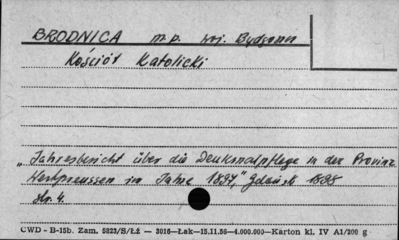 BRODNICA m.p. woj. Bydgoszcz
Kościół Katolicki
„Jahresbericht über die Denkmalpflege in der Provinz
Westpreussen im Jahre 1897," Gdańsk 1898
str. 4.
CWD - B-15b. Zam. 5823/S/Łź — 3016—Łak—15.11.56—4.000.000—Karton kl. IV A1/200 g